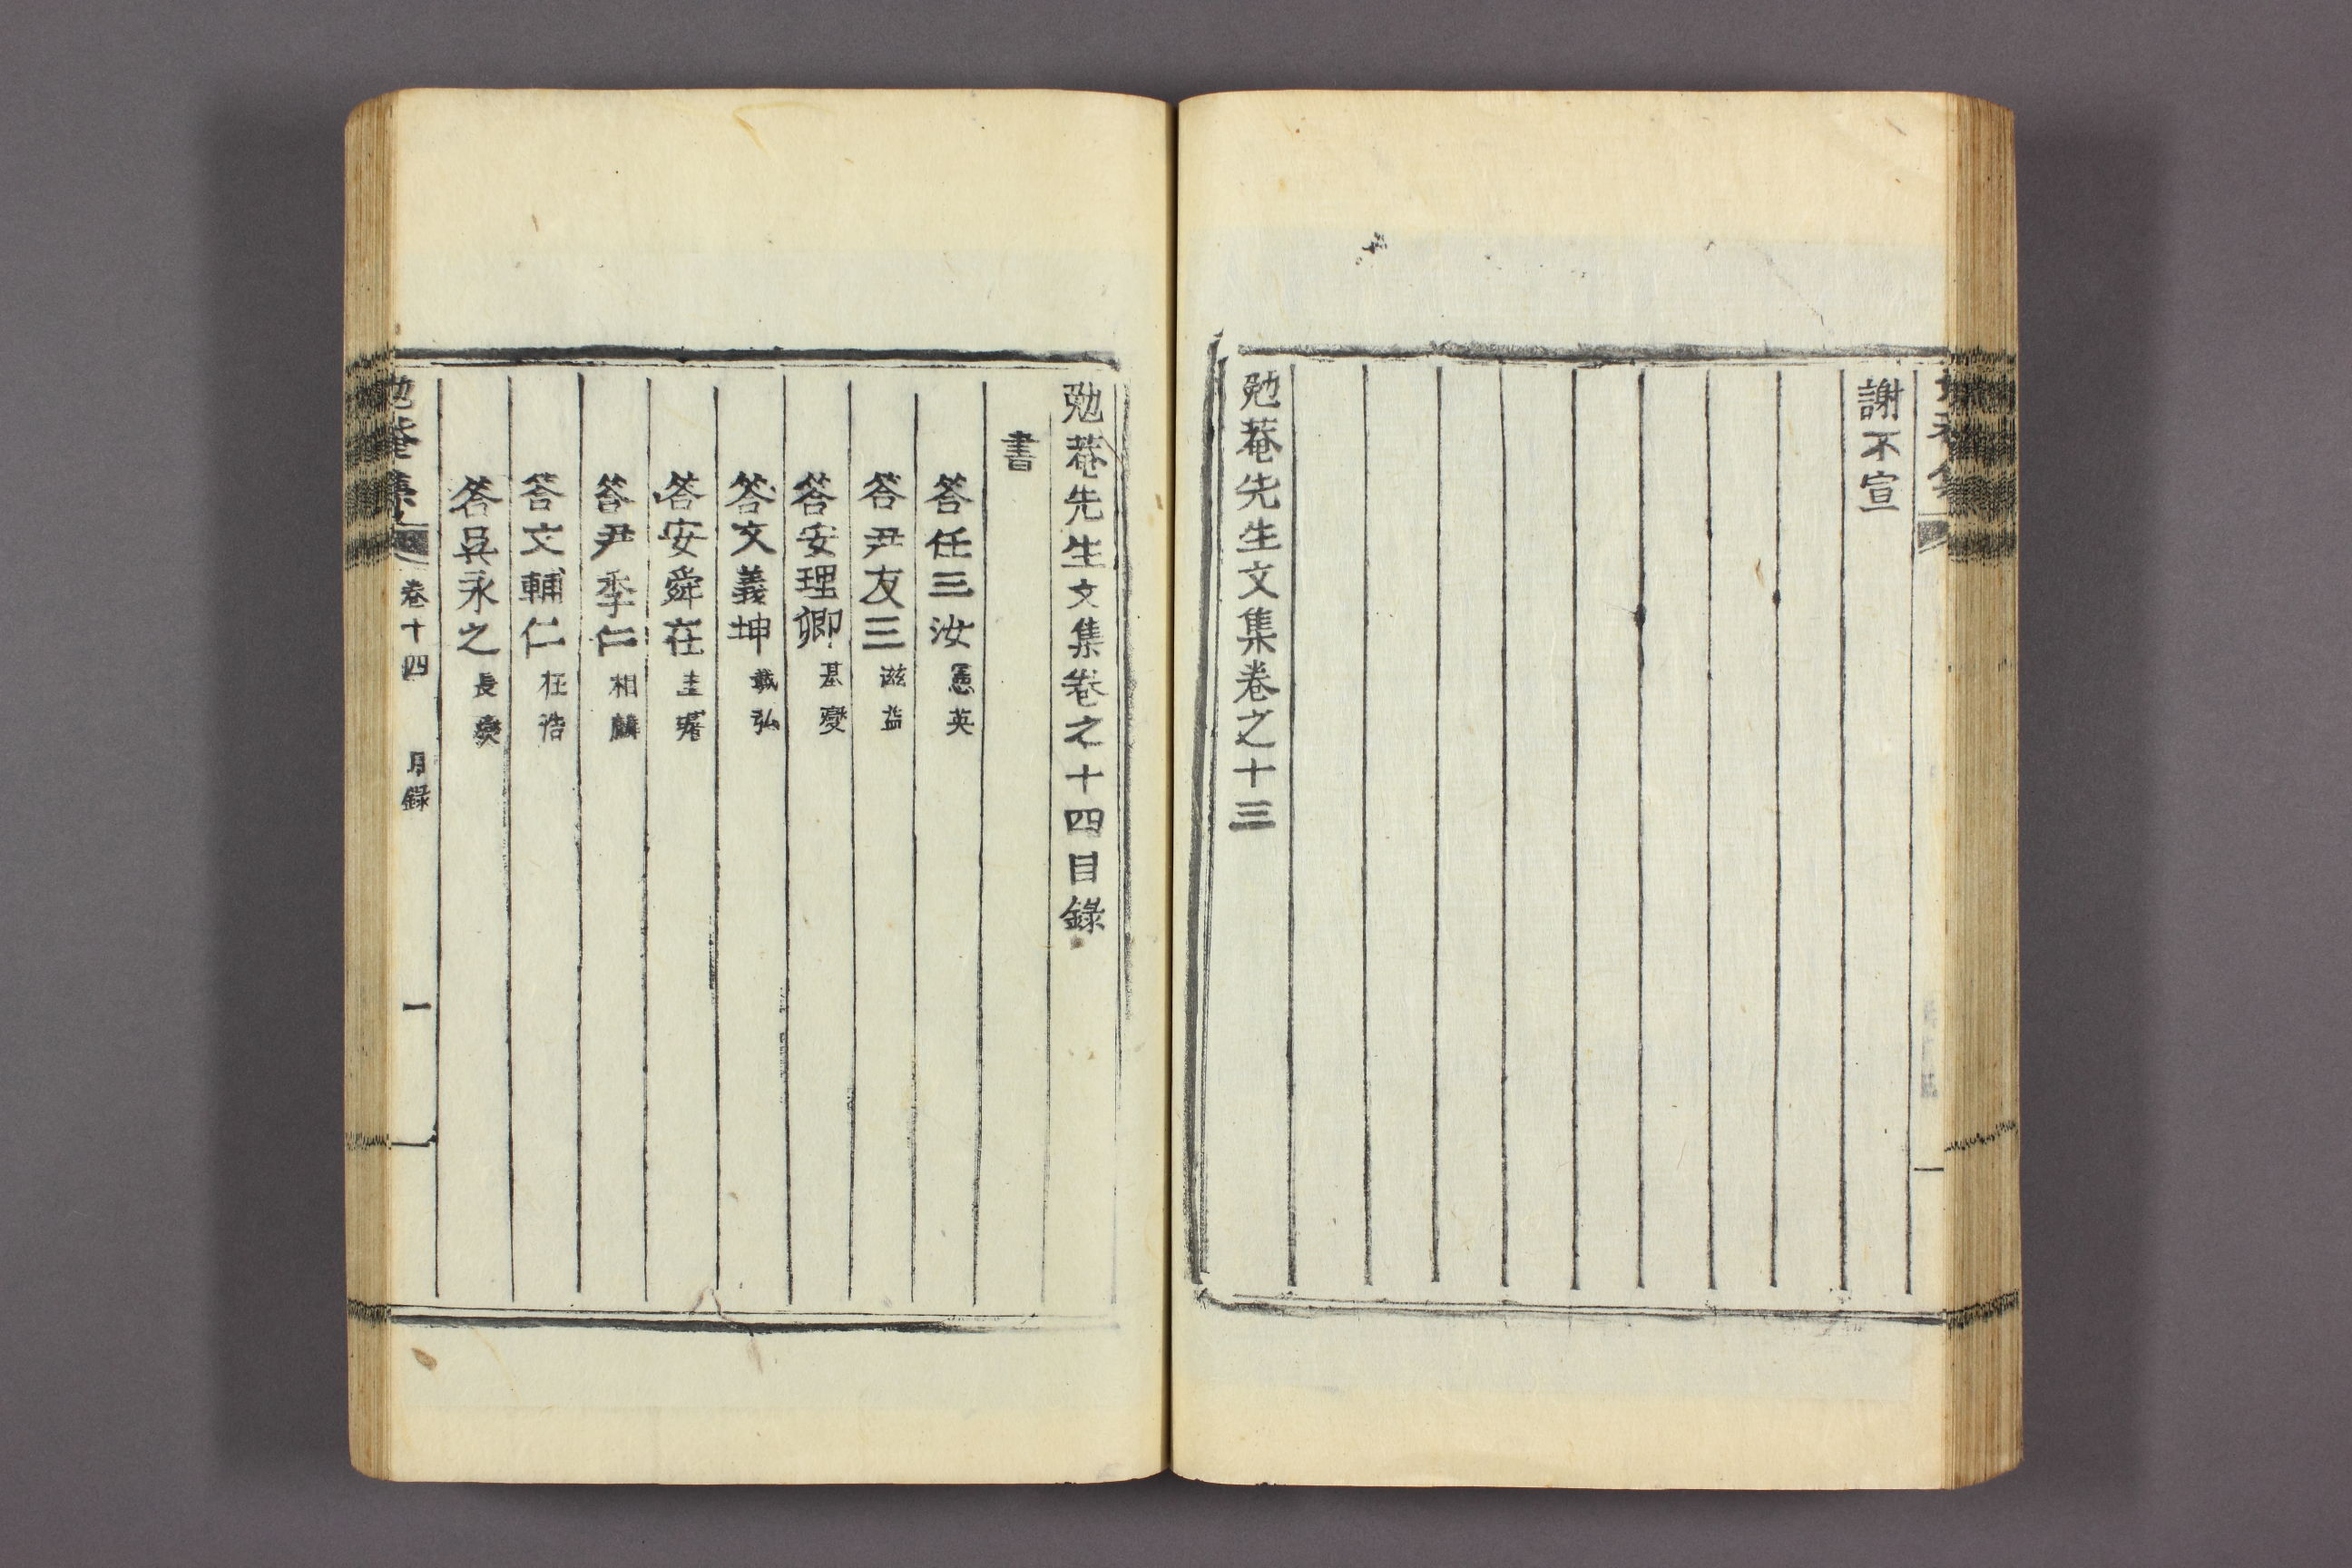 謝不宣
勉菴先生文集卷之十三
勉菴先生文集卷之十四目錄
書
答任三汝憲英
答尹友三滋益
答安理卿基燮
答文義坤載弘
答安舜在圭珺
答尹季仁相麟
答文輔仁在浩
答吳永之長燮
勉菴集 卷十四 目錄 一